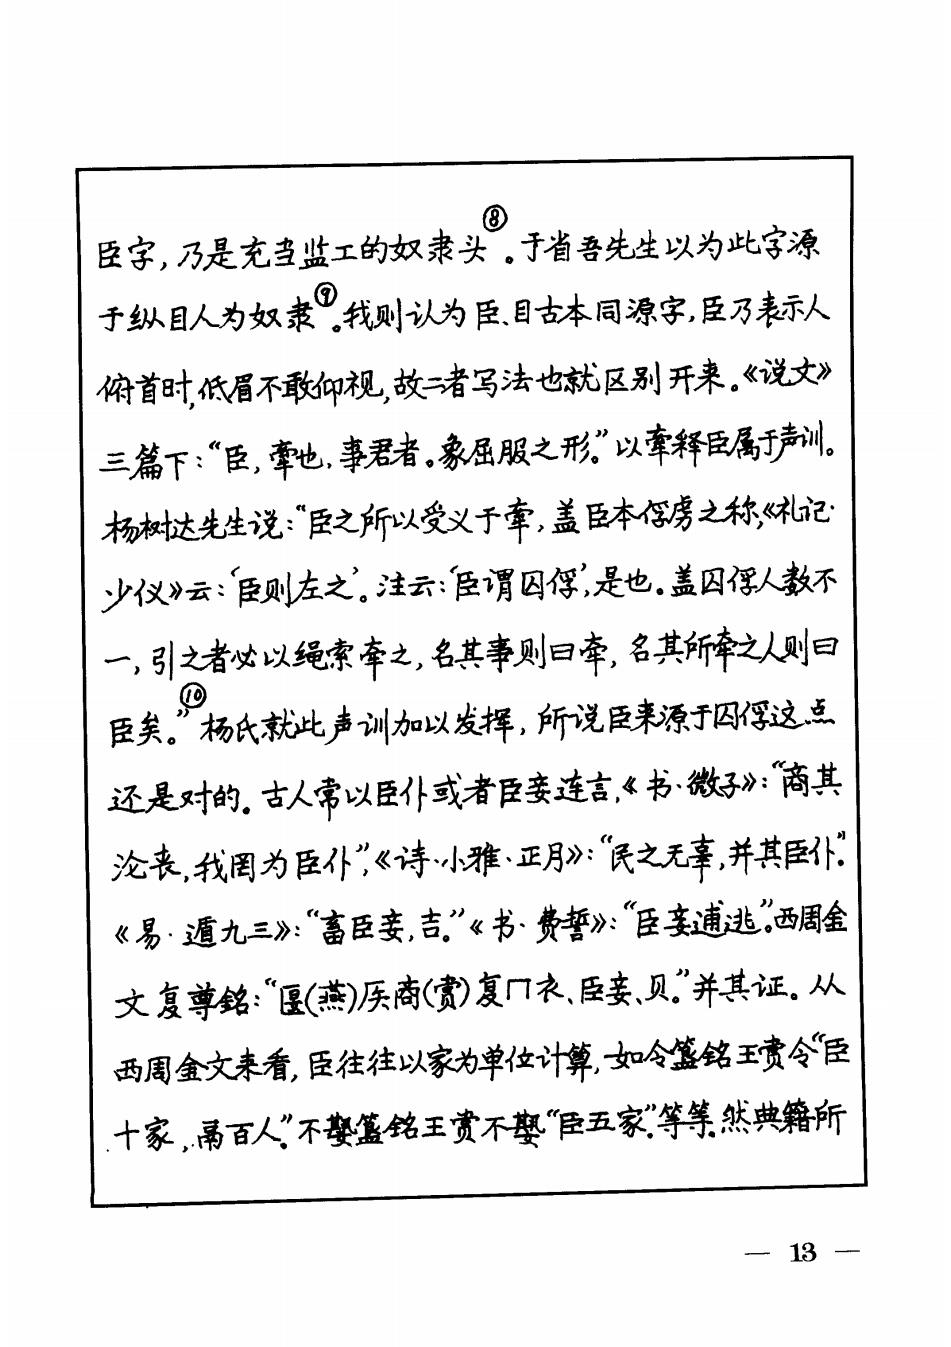 臣字，乃是充当监工的奴隶头⑧。于省吾先生以为此字源
于纵目人为奴隶⑨。我则认为臣、目古本同源字，臣乃表示人
俯首时，低眉不敢仰视，故二者写法也就区别开来。《说文》
三篇下：“臣，牵也，事君者。象屈服之形。”以牵释臣属于声训。
杨树达先生说：“臣之所以受义于牵，盖臣本俘虏之称，《礼记·
少仪》云：‘臣则左之’。注云：‘臣谓囚俘’，是也。盖囚俘人数不
一，引之者必以绳索牵之，名其事则曰牵，名其所牵之人则曰
臣矣。”⑩杨氏就此声训加以发挥，所说臣来源于囚俘这点
还是对的。古人常以臣仆或者臣妾连言，《书·微子》：“商其
沦丧，我罔为臣仆”，《诗·小雅·正月》：“民之无辜，并其臣仆。”
《易·遁九三》：“畜臣妾，吉。”《书·费誓》：“臣妾逋逃”。西周金
文复尊铭：“匽(燕)厌商(赏)复冂衣、臣妾、贝。”并其证。从
西周金文来看，臣往往以家为单位计算，如令簋铭王赏令“臣
十家，鬲百人”。不嬰簋铭王赏不嬰“臣五家”。等等。然典籍所
— 13 —